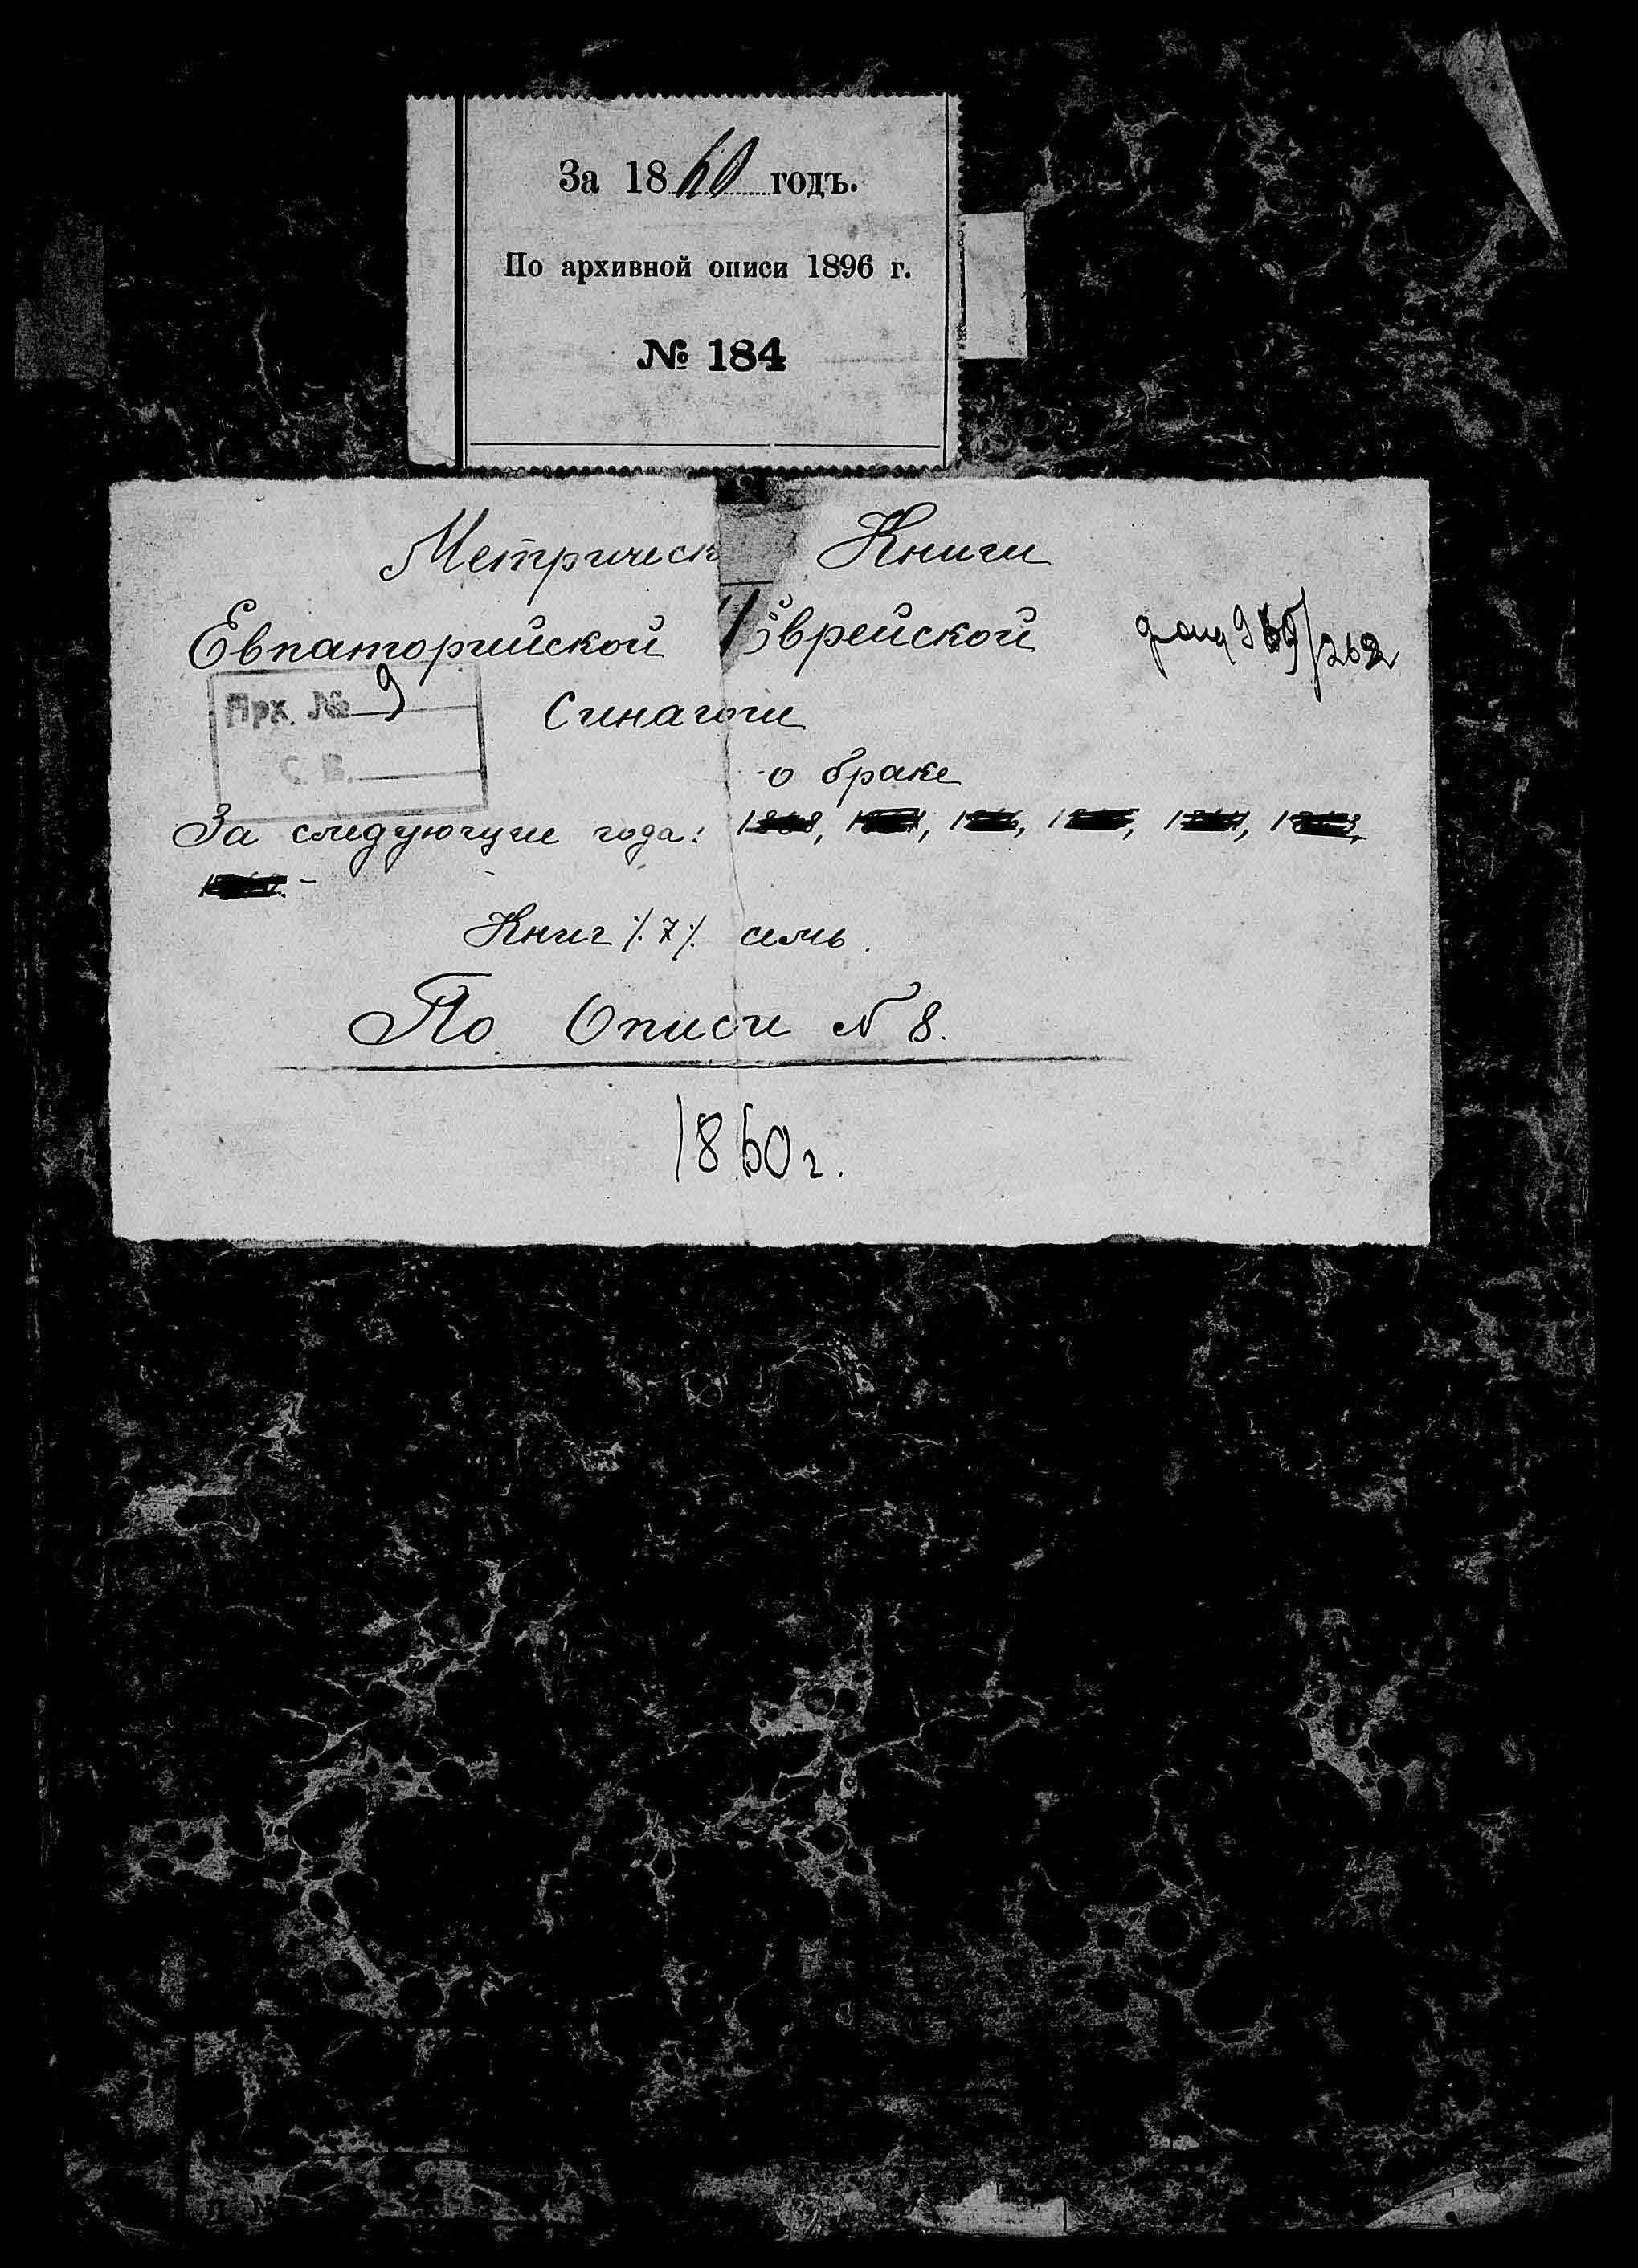 За 1860 годъ.
По архивной описи 1896 г.
№ 184
Метрическ Книги
Евпаторийской Еврейской
фонд 369/262
Арх. № 9
С. В.
Синагоги
о браке
За следующие года: 1868,
Книг /.7/. семь.
По Описи № 8.
1860 г.